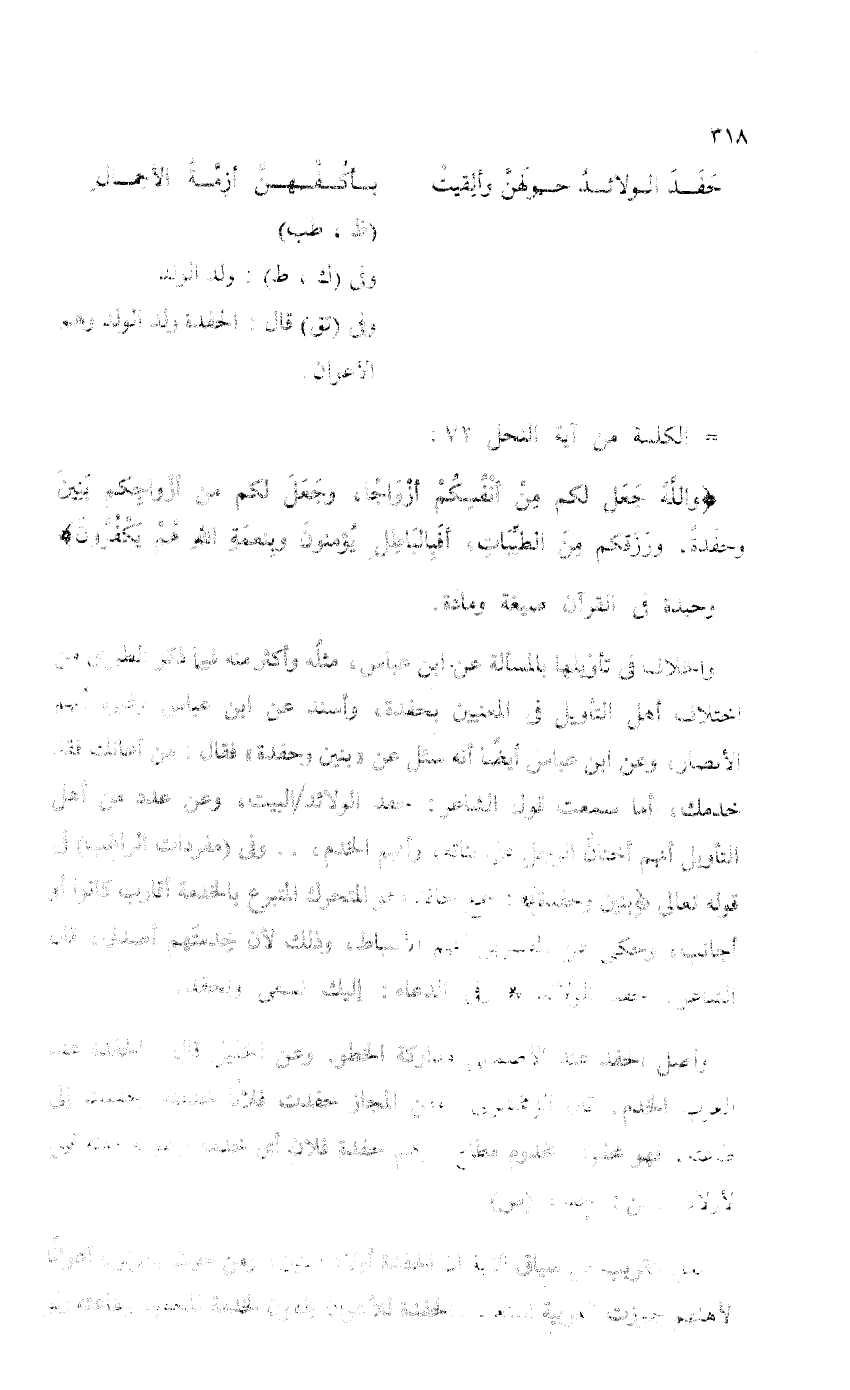 ٣١٨
حَفَدَ الـولائـدُ حـولَهنَّ وأُلقيتْ بـأكُـفِّـهـنَّ أزِمَّـةُ الأجمـالِ
(ظ ، طب)
وفى (ك ، ط) : ولد الولد
وفى (تق) قال : الحفدة ولد الولد وهم
الأعوان .
= الكلمة من آية النحل ٧٢ :
﴿واللَّهُ جَعَل لكم مِنْ أَنْفُسِكُمْ أزْوَاجًا، وجَعَلَ لكم من أزْواجِكم بَنِينَ
وحفَدةً. ورَزَقكم مِنَ الطَّيِّباتِ، أفَبِالبَاطِلِ يُؤمنونَ وبِنعمَةِ اللهِ هُمْ يَكْفُرُونَ﴾
وحيدة فى القرآن صيغة ومادة.
واختلاف فى تأويلها بالمسألة عن ابن عباس، مثلُه وأكثر منه فيما ذكر الطبرى من
اختلاف أهل التأويل فى المعنيين بحفدة، وأسند عن ابن عباس وغيره أنهم
الأصهار، وعن ابن عباس أيضًا أنه سئل عن «بنين وحفدة» فقال : من أعانك فقد
خدمك، أما سمعت قول الشاعر : حفد الولائد/البيت، وعن عدد من أهل
التأويل أنهم أختان الرجل على بناته، وأنهم الخدم، .. وفى (مفردات الراغب) فى
قوله تعالى ﴿بنين وحفدة﴾ : جمع حافد، هو المتحرك المتبرع بالخدمة أقارب كانوا أو
أجانب، وحكى عن المفسرين أنهم الأسباط، وذلك لأن خِدمتَهم أصدق، قال
الشاعر. حفد الولائد * وفى الدعاء : إليك نسعى ونحفد.
وأصل الحفد عند الأصمعى مداركة الخطو. وعن الخليل قال الحفدة عند
العرب الخدم. قال الزمخشرى ومن المجاز حفدت فلانًا خدمته وخففت إلى
طاعته. فهو محفود مخدوم مطاع وهم حفدة فلان أى خدمه
(س)
سياق الآية أن الحفدة أولاد البنين، ومن حيث يكونون أعوانًا
لأهليهم جوزت العربية الحفدة للأعوان الخدمة